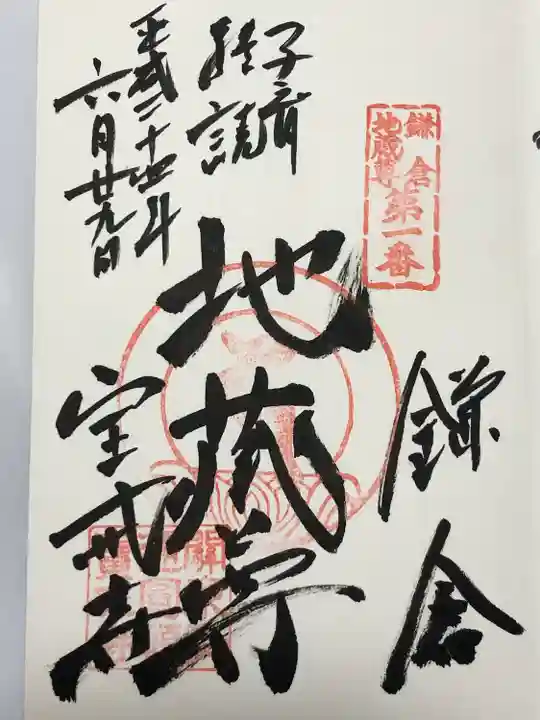 鎌倉
地蔵尊
第一番
鎌倉
地蔵尊
子育
経読
平成二十四年
六月廿九日
宝戒寺